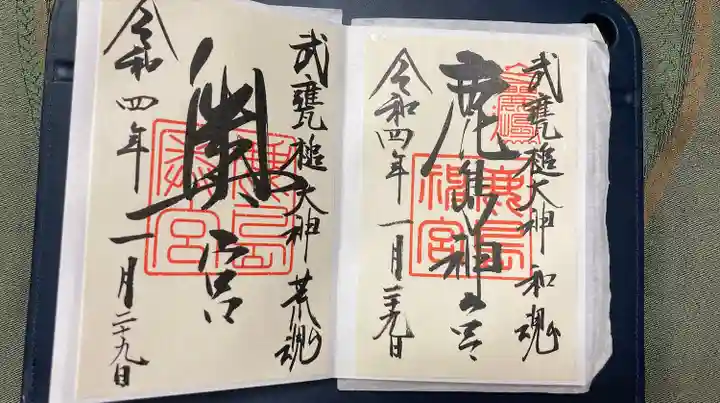 武甕槌大神 和魂
鹿島神宮
鹿島神宮
令和四年一月二十九日
武甕槌大神 荒魂
奥宮
鹿島
宮
令和四年一月二十九日